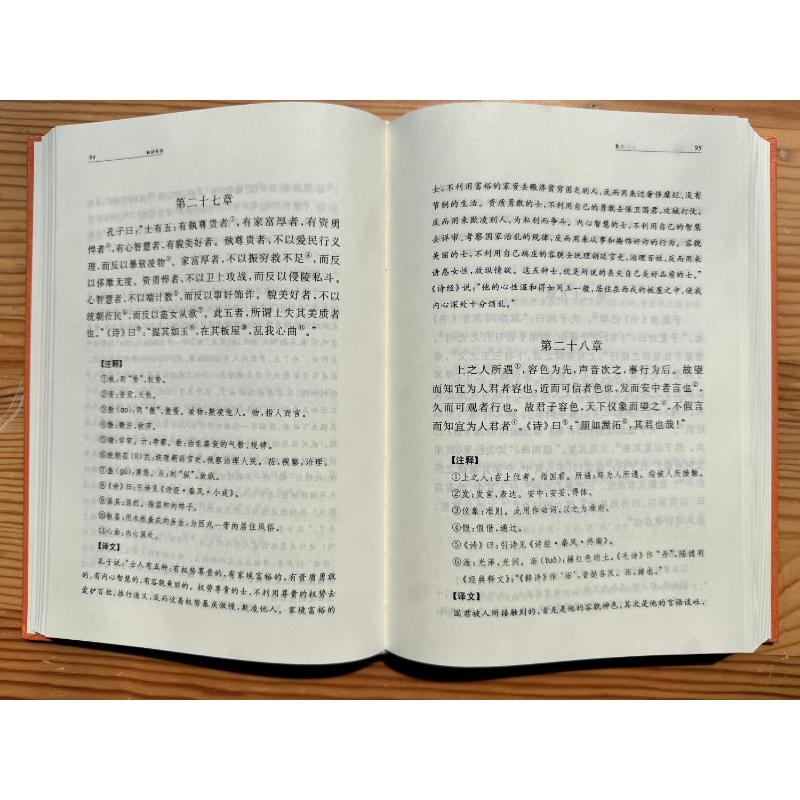 94
韩诗外传
第二十七章
孔子曰：“士有五：有埶尊贵者①，有家富厚者，有资勇
悍者②，有心智慧者，有貌美好者。埶尊贵者，不以爱民行义
理，而反以暴敖凌物③。家富厚者，不以振穷救不足④，而反
以侈靡无度。资勇悍者，不以卫上攻战，而反以侵陵私斗。
心智慧者，不以端计数⑤，而反以事奸饰诈。貌美好者，不以
统朝莅民⑥，而反以蛊女从欲⑦。此五者，所谓士失其美质者
也。”《诗》曰⑧：“温其如玉⑨，在其板屋⑩，乱我心曲⑪。”
【注释】
①埶：同“势”，权势。
②资：资质，天性。
③敖（ào）：同“傲”，傲慢。凌物：欺凌他人。物，指人而言。
④振：赈济，救济。
⑤端：详审。计：考察。数：治乱盛衰的气数、规律。
⑥统朝莅（lì）民：统理朝廷官吏，视察治理人民。莅，视察，治理。
⑦蛊（gǔ）：诱惑。从：同“纵”，放纵。
⑧《诗》曰：引诗见《诗经·秦风·小戎》。
⑨温其：温然。指温和的样子。
⑩板屋：用木板盖成的房屋，为西戎一带的居住风俗。
⑪心曲：内心深处。
【译文】
孔子说：“士人有五种：有权势尊贵的，有家境富裕的，有资质勇敢
的，有内心智慧的，有容貌美丽的。权势尊贵的士，不利用尊贵的权势去
爱护百姓，推行道义，反而仗着权势暴戾傲慢，欺凌他人。家境富裕的
卷二
95
士，不利用富裕的家资去赈济贫穷困乏的人，反而用来过奢侈糜烂、没有
节制的生活。资质勇敢的士，不利用自己的勇敢去保卫国君，攻城打仗，
反而用来欺凌别人，为私利而争斗。内心智慧的士，不利用自己的智慧
去详审、考察国家治乱的规律，反而用来从事和掩饰奸诈的行为。容貌
美丽的士，不利用自己端庄的容貌去统理朝廷官吏，治理百姓，反而用来
诱惑女性，放纵情欲。这五种士，就是所说的丧失自己美好品质的士。”
《诗经》说：“他的心性温和得如同玉一般，居住在西戎的板屋之中，使我
内心深处十分烦乱。”
第二十八章
上之人所遇①，容色为先，声音次之，事行为后。故望
而知宜为人君者容也，近而可信者色也，发而安中者言也②，
久而可观者行也。故君子容色，天下仪象而望之③，不假言
而知宜为人君者④。《诗》曰⑤：“颜如渥沰⑥，其君也哉！”
【注释】
①上之人：在上位者。指国君。所遇：即为人所遇。指被人所接触。
②发：发言，表达。安中：安妥，得体。
③仪象：准则。此用作动词，以之为准则。
④假：假借，通过。
⑤《诗》曰：引诗见《诗经·秦风·终南》。
⑥渥：光泽，光润。沰（tuō）：赭红色的土。《毛诗》作“丹”。陆德明
《经典释文》：“《韩诗》作‘沰’，音挞各反。沰，赭也。”
【译文】
国君被人所接触到的，首先是他的容貌神色，其次是他的言语谈吐，